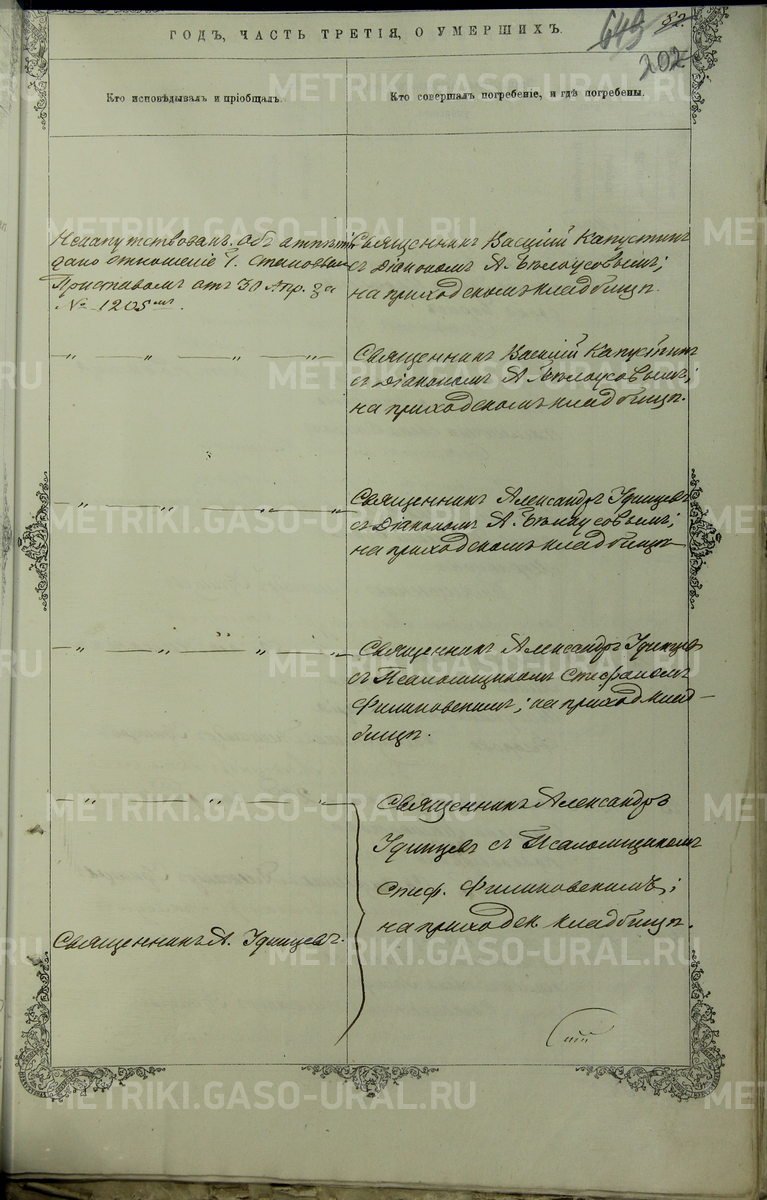 ГОДЪ, ЧАСТЬ ТРЕТІЯ, О УМЕРШИХЪ.
649
82.
202
Кто исповѣдывалъ и пріобщалъ.
Кто совершалъ погребеніе, и гдѣ погребены.
Ненапутствованъ. Объ отпѣтіи
дано отношеніе Г. Становымъ
Приставомъ отъ 30 Апр. за
№ 1205
Священникъ Василій Капустинъ
съ діакономъ А. Бѣлоусовымъ;
на приходскомъ кладбищѣ.
— „ — „ — „ — „ —
Священникъ Василій Капустинъ
съ діакономъ А. Бѣлоусовымъ;
на приходскомъ кладбищѣ.
— „ — „ — „ — „
Священникъ Александръ Удинцевъ
съ Діакономъ А. Бѣлоусовымъ;
на приходскомъ кладбищѣ
— „ — „ — „ — „
Священникъ Александръ Удинцев
съ Псаломщикомъ Стефаномъ
Филиновскимъ; на приход. клад-
бищѣ.
— „ — „ — „
Священникъ Александръ
Удинцев съ Псаломщикомъ
Стеф. Филиновскимъ;
на приходск. кладбищѣ.
Священникъ А. Удинцевъ.
METRIKI.GASO-URAL.RU